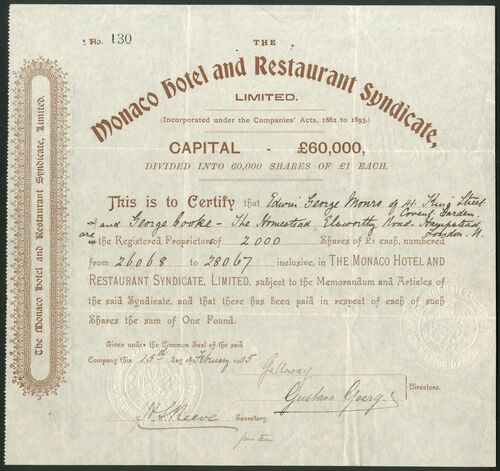 No. 130
THE
Monaco Hotel and Restaurant Syndicate,
LIMITED.
(Incorporated under the Companies' Acts, 1862 to 1893.)
CAPITAL - £60,000,
DIVIDED INTO 60,000 SHARES OF £1 EACH.
This is to Certify that Edwin George Monro of 41 King Street
Covent Garden
and George Cooke - The Homestead, Elsworthy Road - Hampstead
London. N.
are the Registered Proprietors of 2000 Shares of £1 each, numbered
from 26068 to 28067 inclusive, in THE MONACO HOTEL AND
RESTAURANT SYNDICATE, LIMITED, subject to the Memorandum and Articles of
the said Syndicate, and that there has been paid in respect of each of such
Shares the sum of One Pound.
Given under the Common Seal of the said
Company this 15th day of February
Galloway
Gustave Georg
Directors.
Reeve Secretary.
pro tem
The Monaco Hotel and Restaurant Syndicate, Limited.